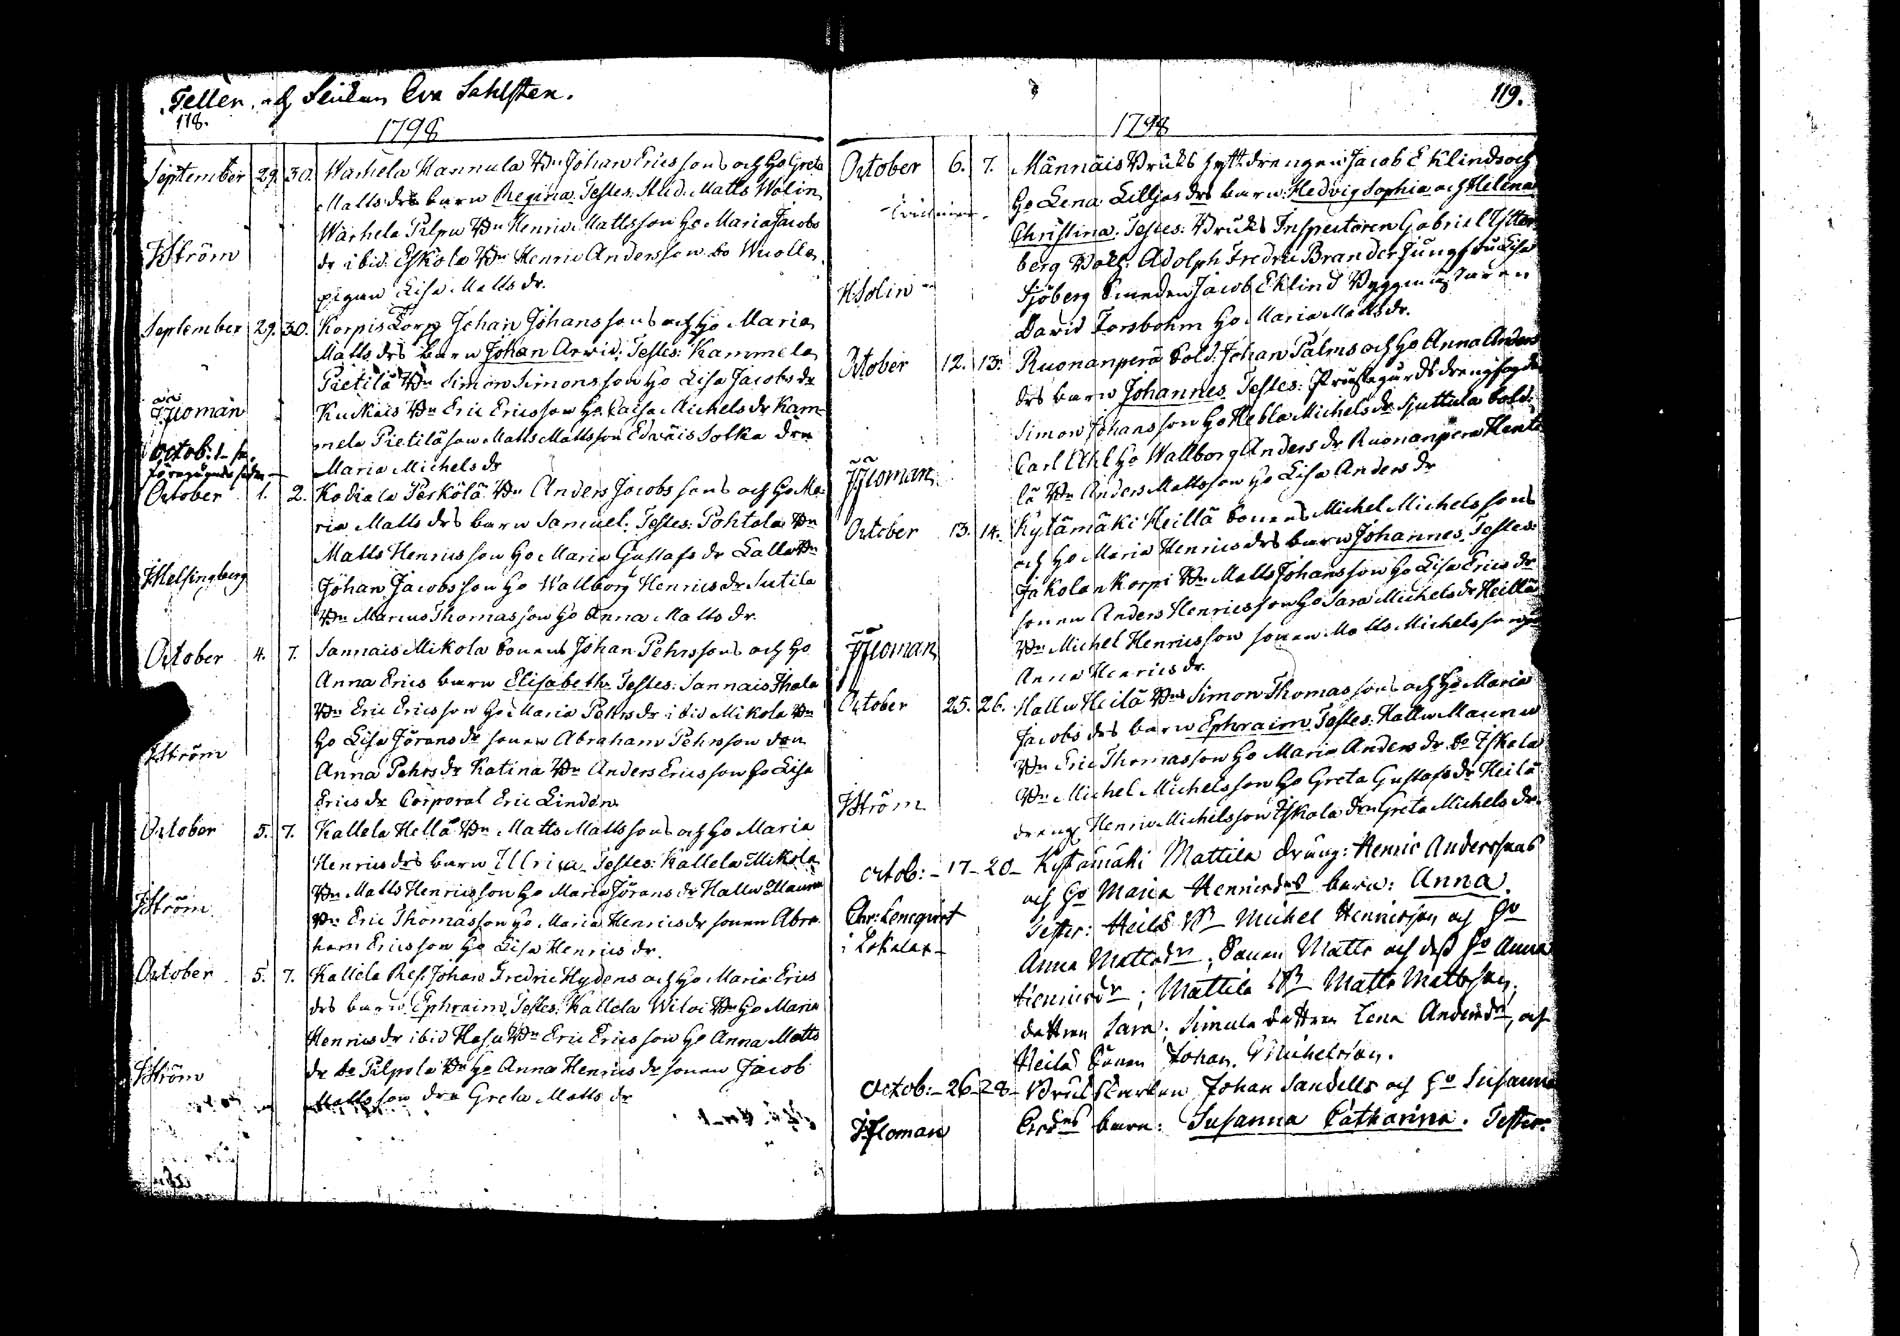 Teller, och Enkan Eva Sahlsten.
118.
1798
September 29. 30. Warhela Hannula Bn Johan Ericssons och Ho Greta
Matts drs barn Regina. Testes: Stud. Matts Wolin
Warhela Pilpu Bn Henric Mattsson Ho Maria Jacobs
dr ibid. Eskola Bn Henric Andersson do Wuolle
HStröm
pigan Lisa Matts dr.
September 29. 30. Korpis Johan Johanssons och Ho Maria
Matts drs barn Johan Arvid. Testes: Kammela
Pietilä Bn Simon Simonsson Ho Lisa Jacobs dr
JFloman
Kukkais Bn Eric Ericsson Ho Caisa Michels dr Kam-
mela Pietilä son Matts Mattsson Edväis Solka drn
Octob: 1
Maria Michels dr
October 1. 2. Kodiala Perkölä Bn Anders Jacobssons och Ho Ma-
ria Matts drs barn Samuel. Testes: Pohtola Bn
Matts Henricsson Ho Maria Gustafs dr Lalla Bn
JHelsingberg
Johan Jacobsson Ho Wallborg Henrics dr Sutila
Bn Marcus Thomasson Ho Anna Matts dr.
October 4. 7. Sannais Mikola Sonens Johan Pehrssons och Ho
Anna Erics barn Elisabeth. Testes: Sannais Thala
Bn Eric Ericsson Ho Maria Pehrs dr ibid Mikola Bn
Ho Lisa Jörans dr sonen Abraham Pehrsson drn
HStröm
Anna Pehrs dr Katina Bn Anders Ericsson Ho Lisa
Erics dr Corporal Eric Lindén
October 5. 7. Kallela Hellä Bn Matts Mattssons och Ho Maria
Henrics drs barn Ulrica. Testes: Kallela Mikola
Bn Matts Henricsson Ho Maria Jörans dr Hallu Maunu
HStröm
Bn Eric Thomasson Ho Maria Henrics dr sonen Abra-
ham Ericsson Ho Lisa Henrics dr.
October 5. 7. Kallela Ref. Johan Fredric Hydens och Ho Maria Erics
drs barn Ephraim. Testes: Kallela Wiloi Bn Ho Maria
Henrics dr ibid Hasu Bn Eric Ericsson Ho Anna Matts
HStröm
dr do Pilpola Bn Ho Anna Henrics dr sonen Jacob
Mattsson drn Greta Matts dr
119.
1798
October 6. 7. Männäis Bruks hytt drengen Jacob Eklinds och
Ho Lena Lilljas drs barn: Hedvig Sophia och Helena
Christina. Testes: Bruks Inspectoren Gabriel Ytter-
berg Adolph Fredric Brander Jungfru Lisa
HSolin
Sjöberg Smeden Jacob Eklind Byggmästaren
David Forsbohm Ho Maria Matts dr.
October 12. 13. Ruonanperä Sold: Johan Palms och Ho Anna Anders
drs barn Johannes. Testes: Prästegårds
Simon Johansson Ho Hebla Michels dr Sjuttula Sold:
Carl Ahl Ho Wallborg Anders dr Ruonanpera Hent-
JFloman
lä Bn Anders Mattsson Ho Lisa Anders dr
October 13. 14. Kytämäki Heillä Sonens Michel Michelssons
och Ho Maria Henrics drs barn Johannes. Testes:
Jakolan Korpi Bn Matts Johansson Ho Lisa Erics dr
sonen Anders Henricsson Ho Sara Michels dr Heillä
JFloman
Bn Michel Henricsson sonen Matts Michelsson
Anna Henrics dr.
October 25. 26. Hallu Heilä Bns Simon Thomassons och Ho Maria
Jacobs drs barn Ephraim. Testes: Hallu Maunu
Bn Eric Thomasson Ho Maria Anders dr do Eskola
Bn Michel Michelsson Ho Greta Gustafs dr Heilä
HStröm
dreng Henric Michelsson Eskola drn Greta Michels dr.
Octob: 17-20 Kytämäki Mattila dräng: Henric Anderssons
och Ho Maria Henricsdrs barn: Anna.
Chr: Lencqvist
Testes: Heilä Bn Michel Henricsson och Ho
i Lokalax
Anna Mattsdr; Sonen Matts och dess Ho Anna
Henricsdr; Mattila Bn Matts Mattsson;
dottren Sara; Simula dottren Lena Andersdr, och
Heilä Sonen Johan Michelsson.
Octob: 26-28 Bruks Johan Sandells och Ho Susanna
JFloman
Ersdrs barn: Susanna Catharina. Testes: